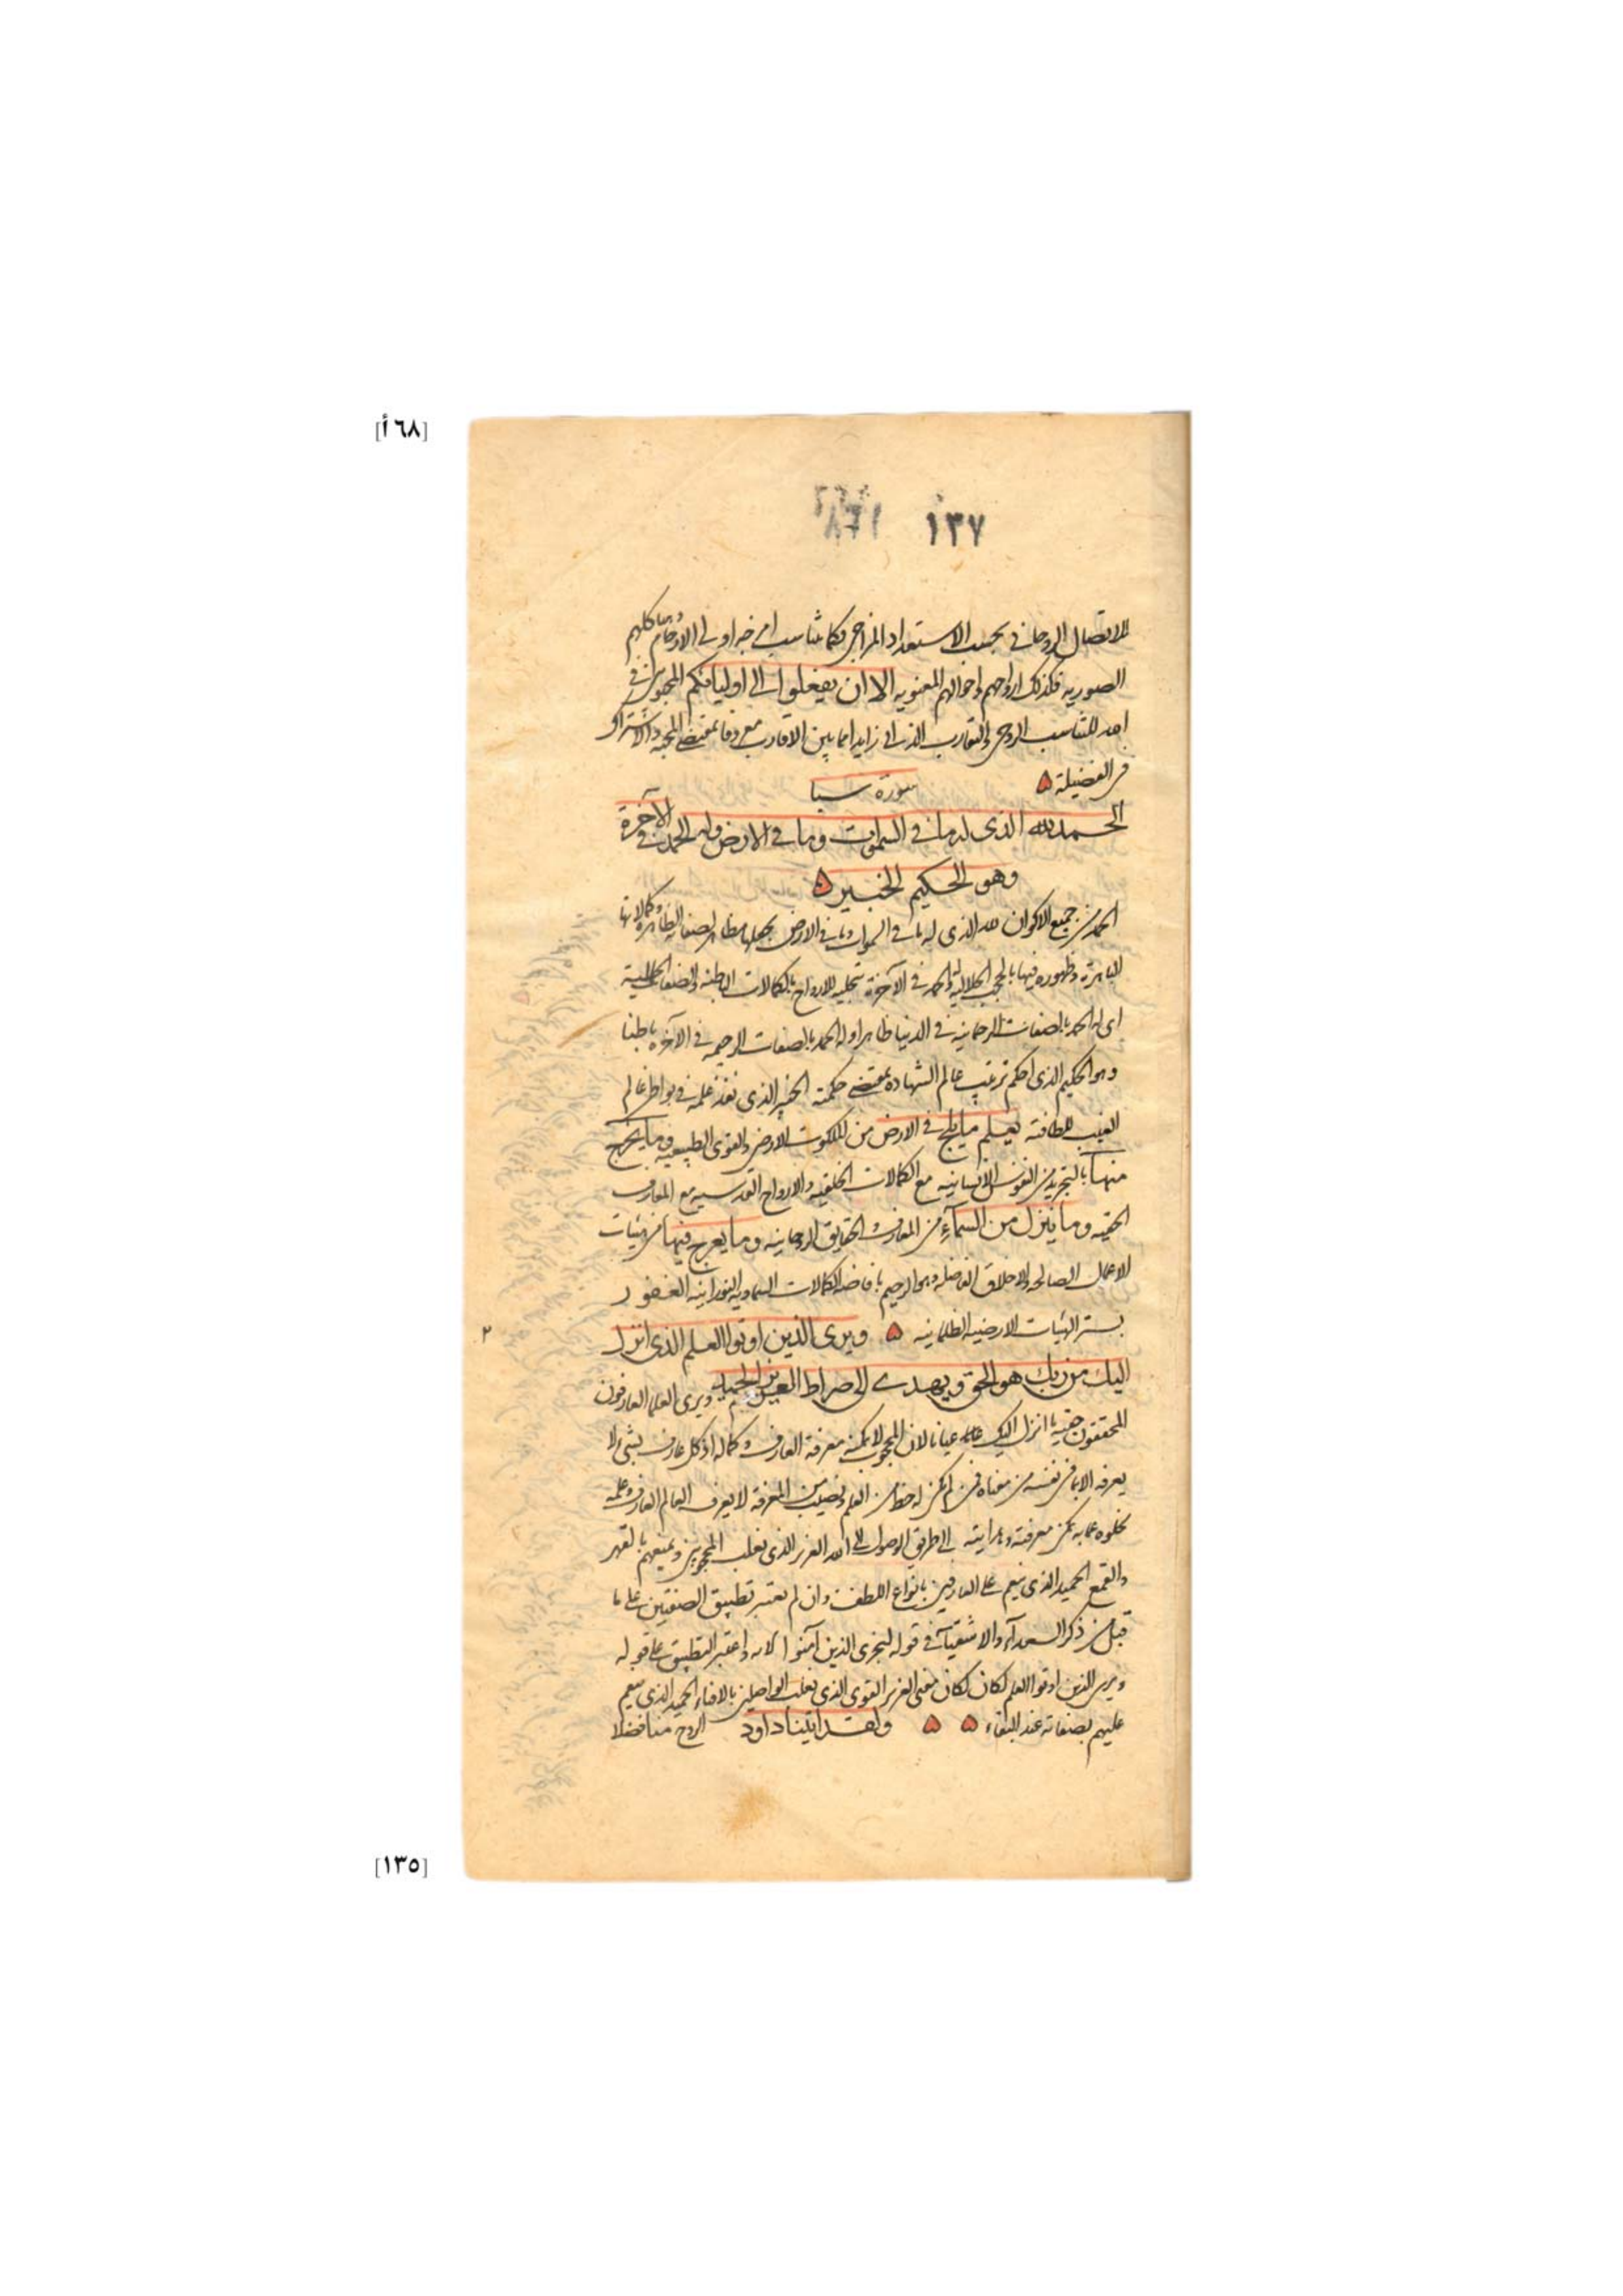 [٦٨أ]
١٣٧
للاتصال الروحاني بحسب الاستعداد المزاجي فكما تناسب امزجه اولي الارحام وهياكلهم
الصوريه فكذلك ارواحهم واحوالهم المعنويه الا ان تفعلوا الى اوليائكم المحبوبين في
الله للتناسب الروحي والتقارب الذاتي زايدا مما بين الاقارب معروفا بمقتضى المحبه والاشتراك
في الفضيلة
سورة سبا
الحمد لله الذي له ما في السموات وما في الارض وله الحمد في الآخرة
وهو الحكيم الخبير
الحمد من جميع الاكوان لله الذي له ما في السموات وما في الارض بجعلها مظاهر لصفاته الظاهره وكمالاتها
الباهرة وظهوره فيها بالحجب الجلالية وله الحمد في الآخرة بتجليه للارواح بالكمالات الباطنه والصفات الجماليه
اى له الحمد بالصفات الرحمانيه في الدنيا ظاهرا وله الحمد بالصفات الرحيميه في الآخره باطنا
وهو الحكيم الذي احكم ترتيب عالم الشهاده بمقتضى حكمته الخبير الذي نفذ علمه في بواطن عالم
الغيب للطافته يعلم ما يلج في الارض من الملكوت الارضي والقوى الطبيعيه وما يخرج
منها بالتجريد من النفوس الانسانيه مع الكمالات الخلقيه والارواح القدسيه مع المعارف
الحقيه وما ينزل من السمآء من المعارف والحقايق الروحانيه وما يعرج فيها من هيئات
الاعمال الصالحه والاخلاق الفاضله وهو الرحيم بافاضه الكمالات السماويه النورانيه الغفور
بستر الهيئات الارضيه الظلمانيه ويرى الذين اوتوا العلم الذي انزل
اليك من ربك هو الحق ويهدى الى صراط العزيز الحميد ويرى العلما العارفون
المحققون حقيه ما انزل اليك عيانا لان المحجوب لا يمكنه معرفة العارف وكماله اذ كل عارف بشيء لا
يعرفه الا بما في نفسه من معناه فمن لم يكن له حظ من العلم ونصيب من المعرفة لا يعرف العالم العارف وعلمه
لخلوه عما به يمكن معرفته وهدايته الى طريق الوصول الى الله العزيز الذي يغلب المحجوبين ويمنعهم بالقهر
والقمع الحميد الذي ينعم على العارفين بانواع اللطف وان لم نعتبر تطبيق الصفتين على ما
قبل من ذكر السعدآء والاشقيآء في قوله ليجزى الذين آمنوا الايه واعتبر التطبيق على قوله
ويرى الذين اوتوا العلم لكان لكان معنى العزيز القوى الذي يغلب الواصلين بالافناء الحميد الذي ينعم
عليهم بصفاته عند البقاء ولقد اتينا داود الروح منا فضلا
٢
[١٣٥]